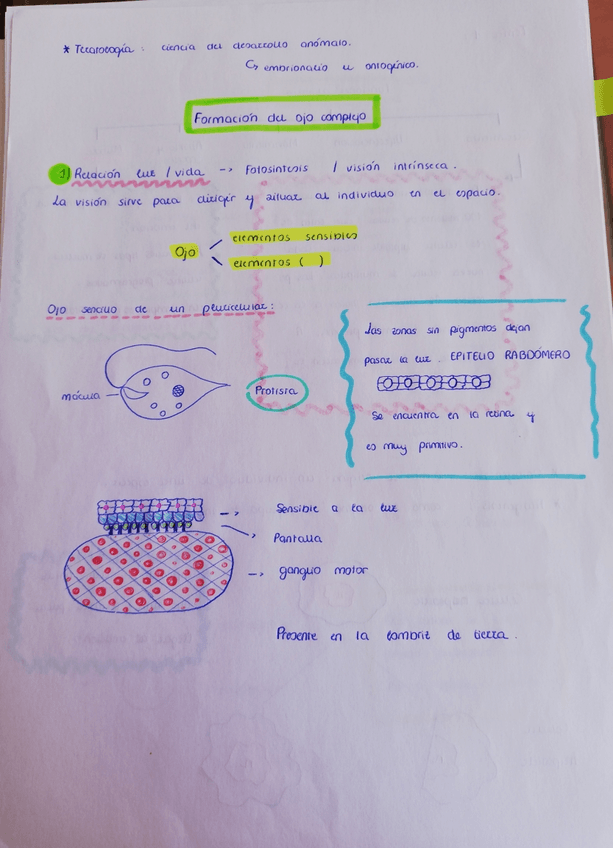 * Teratología : ciencia del desarrollo anómalo.
↳ embrionario u ontogénico.
Formación del ojo complejo
1) Relación luz / vida → Fotosíntesis / visión intrínseca.
La visión sirve para dirigir y situar al individuo en el espacio.
Ojo
elementos sensibles
elementos ( )
Ojo sencillo de un pluricelular:
mácula
Protista
Las zonas sin pigmentos dejan
pasar la luz. EPITELIO RABDÓMERO
Se encuentra en la retina y
es muy primitivo.
→ Sensible a la luz
→ Pantalla
→ ganglio motor
Presente en la lombriz de tierra.